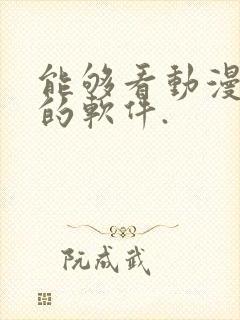 能够看動漫
的軟件.
阮成武